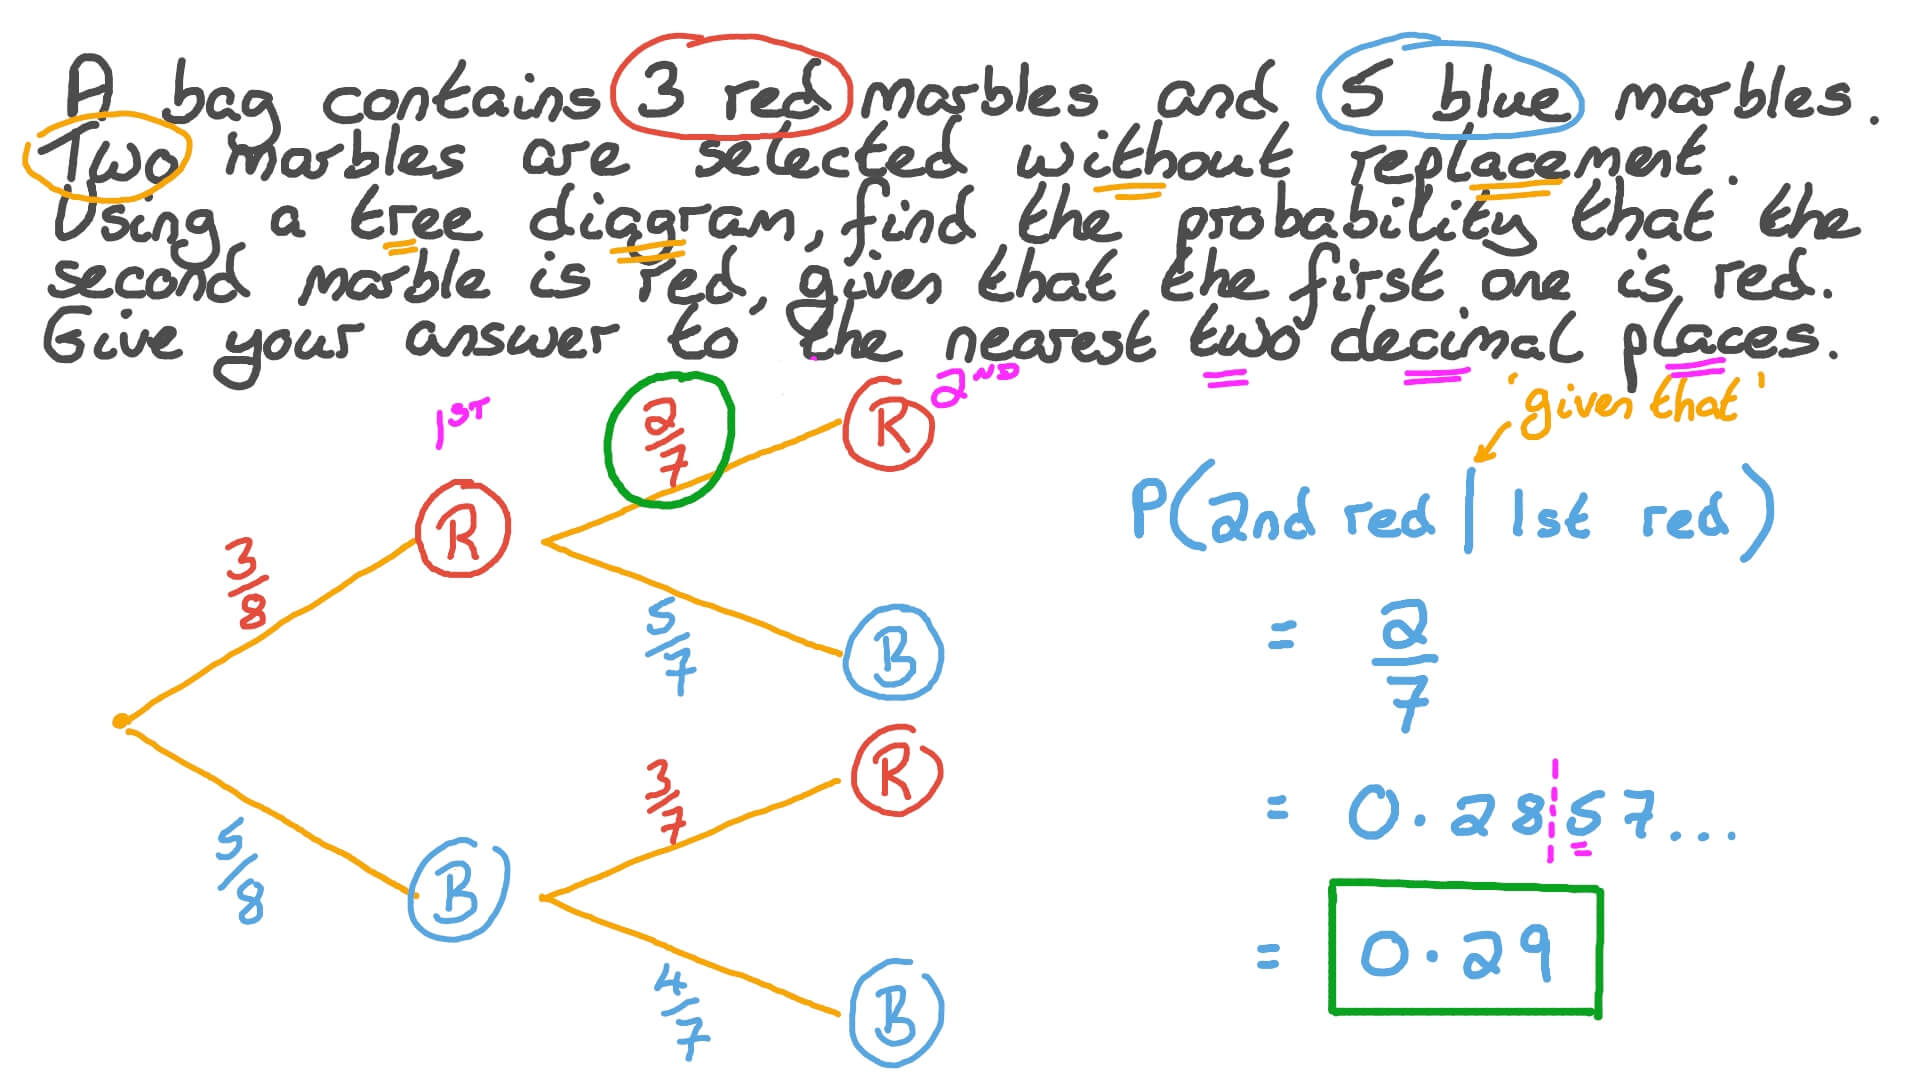 A bag contains 3 red marbles and 5 blue marbles.
Two marbles are selected without replacement.
Using a tree diagram, find the probability that the
second marble is red, given that the first one is red.
Give your answer to the nearest two decimal places.
1ST
2ND
'given that'
2/7
R
R
3/8
P(2nd red | 1st red)
5/7
B
= 2/7
3/7
R
= 0.2857...
5/8
B
= 0.29
4/7
B